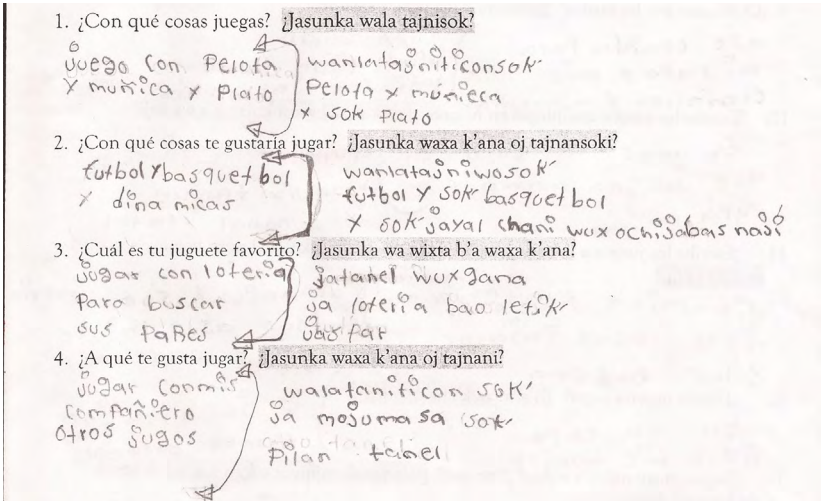 1. ¿Con qué cosas juegas? ¿Jasunka wala tajnisok?
juego con Pelota
y muñica y Plato
wanlatajniticonsok'
Pelota y múñieca
y sok Plato
2. ¿Con qué cosas te gustaría jugar? ¿Jasunka waxa k'ana oj tajnansoki?
futbol y basquet bol
y dina micas
wanlatajniwosok'
futbol y sok' basquet bol
y sok jayal chani wux ochijabas nají
3. ¿Cuál es tu juguete favorito? ¿Jasunka wa wixta b'a waxa k'ana?
jugar con loteria
Para buscar
sus PaRes
jatanel wuxgana
ja loteria bao letik
jaspar
4. ¿A qué te gusta jugar? ¿Jasunka waxa k'ana oj tajnani?
jugar conmis
compañiero
otros jugos
walataniticon sok'
ja mojuma sa sok
Pilan tanel